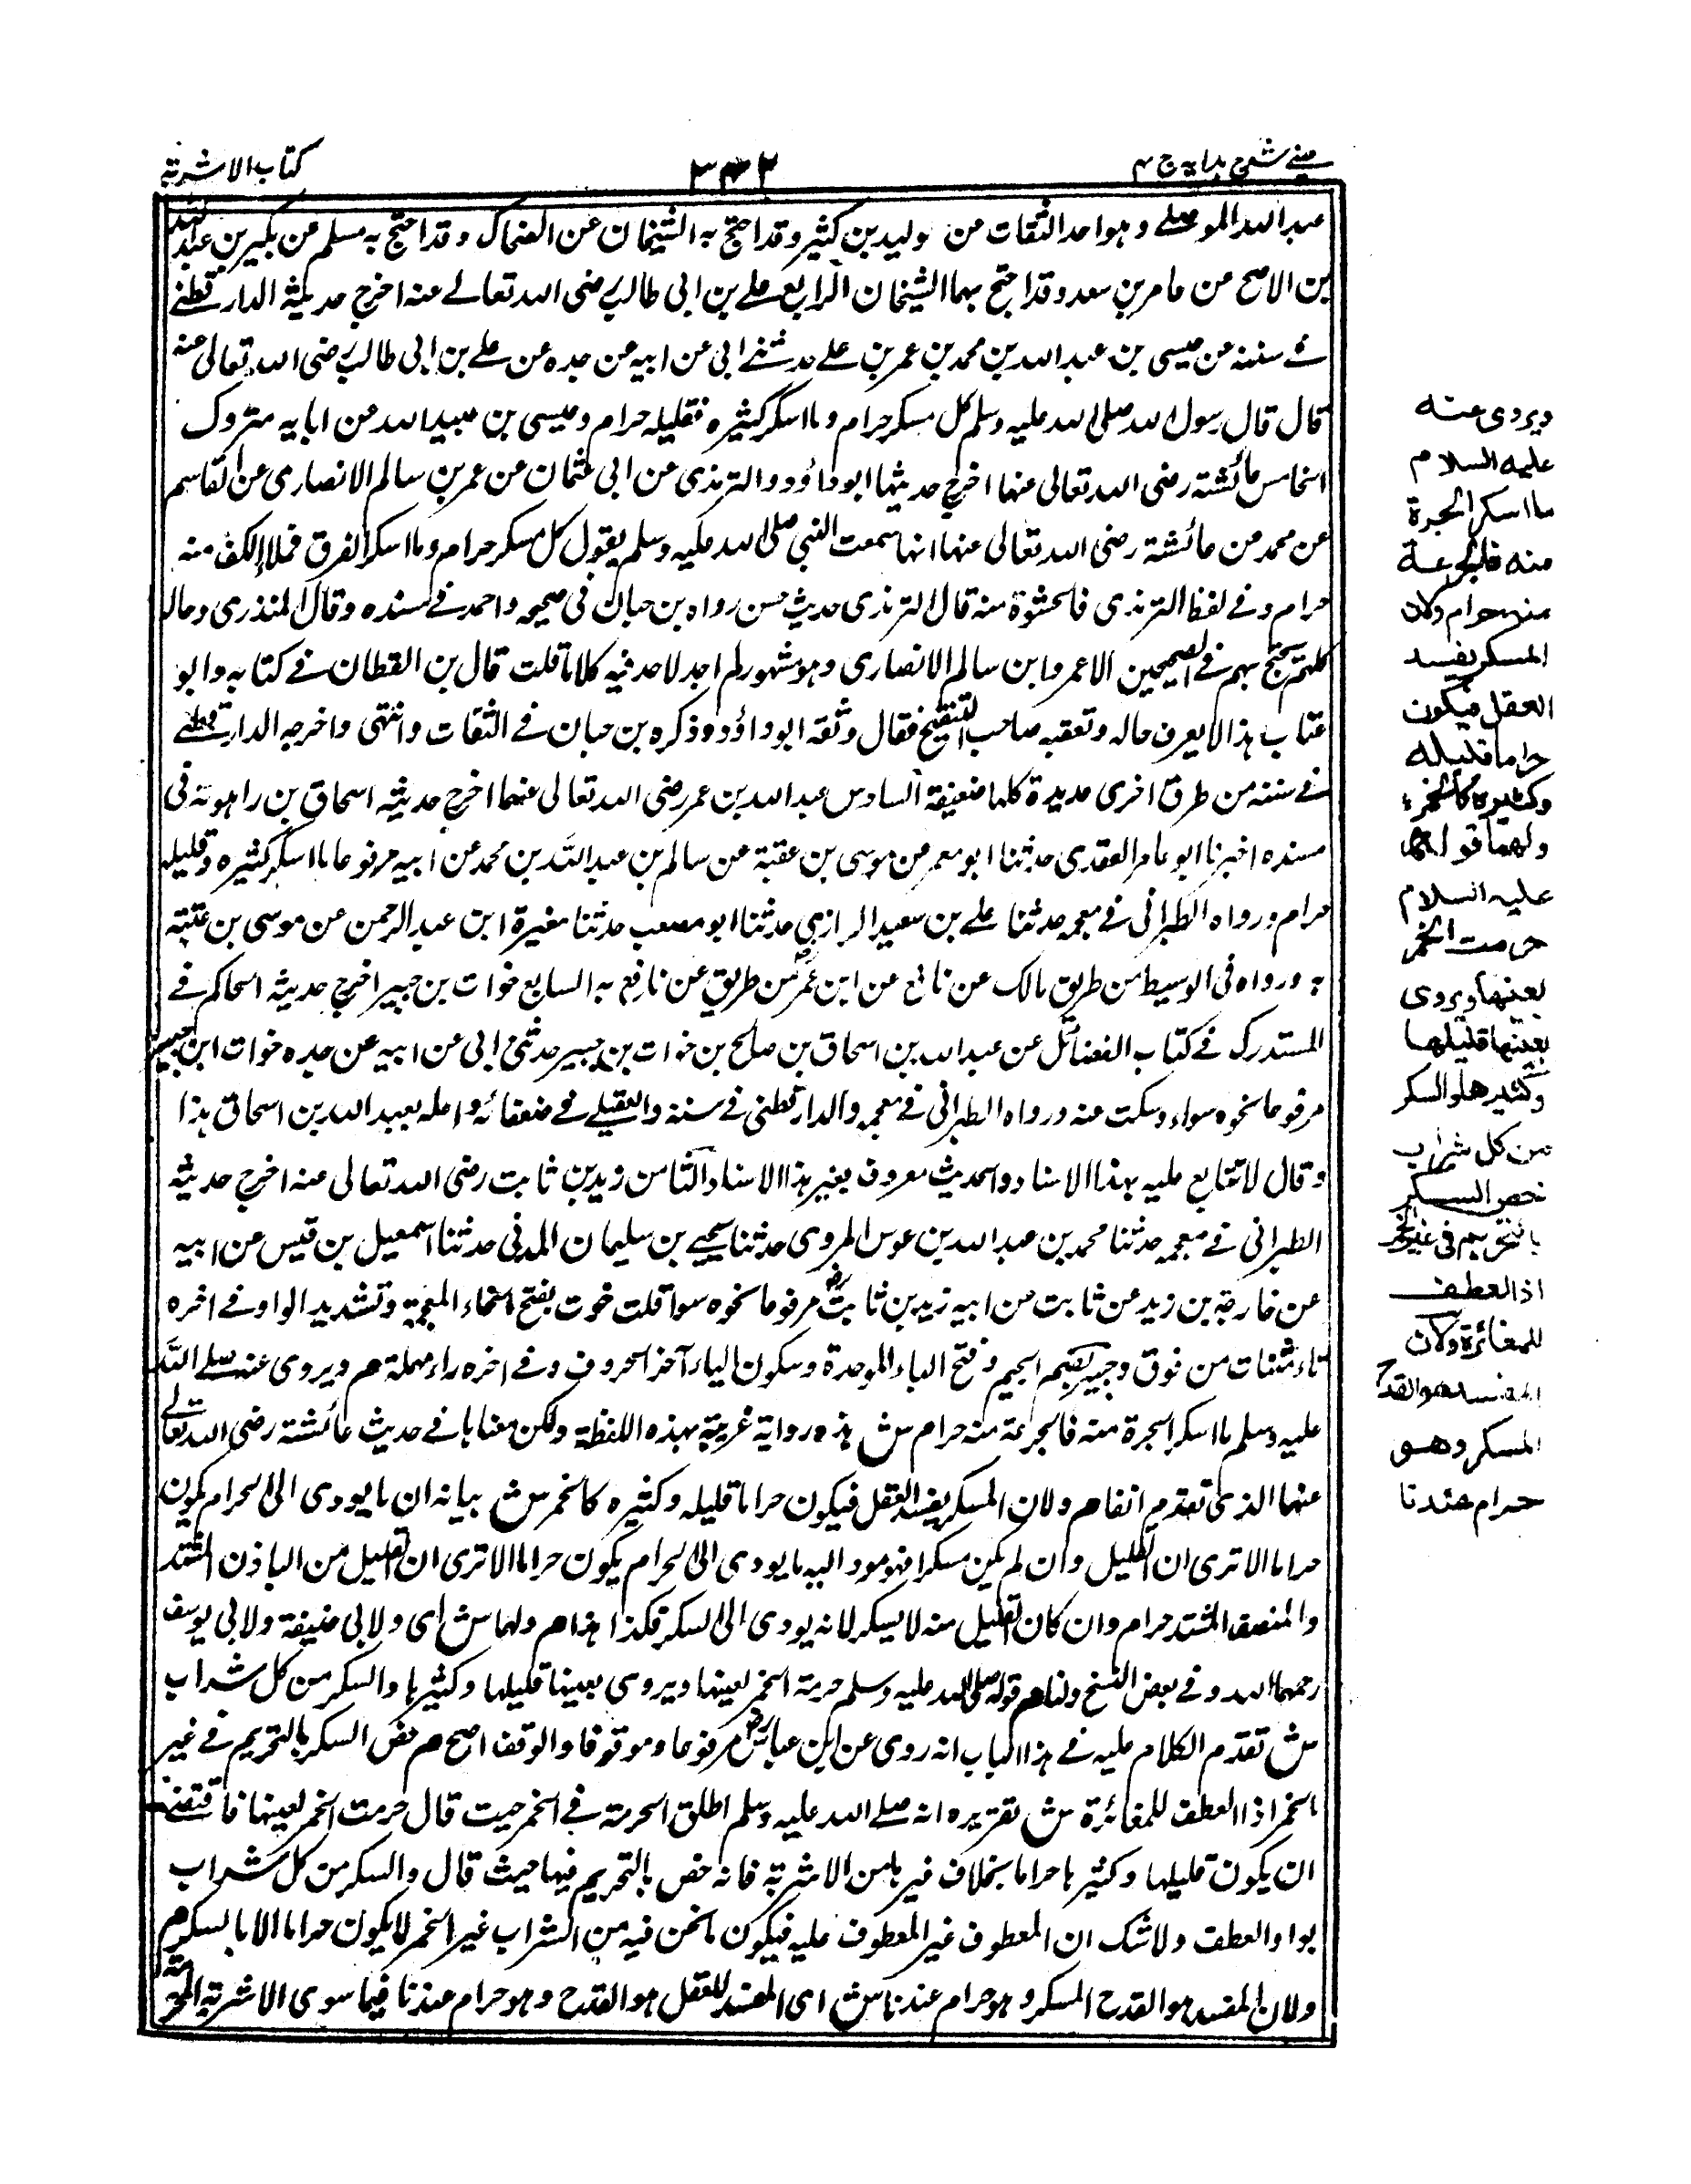 عینی شرح ہدایہ ج ۴
۳۴۲
کتاب الاشربة
عبد الله الموصلے وہو احد الثقات عن وليد بن كثير وقد احتج به الشيخان عن الضحاك وقد احتج به مسلم عن بكير بن عبد الله
بن الاشج عن عامر بن سعد وقد احتج بہما الشيخان الرابع علے بن ابی طالب رضى الله تعالے عنه اخرج حديثه الدارقطنے
فے سننه عن عيسى بن عبد الله بن محمد بن عمر بن علے حدثنے ابی عن ابيه عن جده عن علے بن ابی طالب رضى الله تعالى عنه
قال قال رسول الله صلى الله عليه وسلم كل مسكر حرام وما اسكر كثيره فقليله حرام وعيسى بن عبيد الله عن ابايه متروك
الخامس عائشة رضى الله تعالى عنہا اخرج حديثہا ابو داؤد والترمذى عن ابى عثمان عن عمر بن سالم الانصارى عن القاسم
عن محمد عن عائشة رضى الله تعالى عنہا انہا سمعت النبى صلى الله عليه وسلم يقول كل مسكر حرام وما اسكر الفرق فملأ الكف منه
حرام وفے لفظ الترمذى فالحثوة منه قال الترمذى حديث حسن رواه بن حبان فى صحيحه واحمد فے مسنده وقال المنذرى رجاله
كلہم يحتج بہم فے الصحيحين الا عمروا بن سالم الانصارى وہو مشہور لم اجد لاحد فيه كلاما قلت قال بن القطان فے كتابه وابو
عثاب ہذا لا يعرف حاله وتعقبه صاحب التنقيح فقال وثقه ابو داؤد وذكره بن حبان فے الثقات وانتہى واخرجه الدارقطنے
فے سننه من طرق اخرى عديدة كلہا ضعيفة السادس عبد الله بن عمر رضى الله تعالى عنہما اخرج حديثه اسحاق بن راہويه فى
مسنده اخبرنا ابو عامر العقدى حدثنا ابو معمر عن موسى بن عقبة عن سالم بن عبد الله بن محمد عن ابيه مرفوعا ما اسكر كثيره فقليله
حرام ورواه الطبرانى فے معجمه حدثنا علے بن سعيد الرازى حدثنا ابو مصعب حدثنا مغيرة ابن عبد الرحمن عن موسى بن عقبة
به ورواه فى الوسيط من طريق مالك عن نافع عن ابن عمر من طريق عن نافع به السابع خوات بن جبير اخرج حديثه الحاكم فے
المستدرك فے كتاب الفضائل عن عبد الله بن اسحاق بن صالح بن خوات بن جبير حدثنى ابى عن ابيه عن جده خوات ابن جبير
مرفوعا نحوه سواء وسكت عنه ورواه الطبرانى فے معجمه والدارقطنى فے سننه والعقيلے فے ضعفائه واعله بعبد الله بن اسحاق ہذا
وقال لا تتابع عليه بہذا الاسناد والحديث معروف بغير ہذا الاسناد الثامن زيد بن ثابت رضى الله تعالى عنه اخرج حديثه
الطبرانى فے معجمه حدثنا محمد بن عبد الله بن عوس المروى حدثنا يحيے بن سليمان المدنى حدثنا اسمعيل بن قيس عن ابيه
عن خارجة بن زيد عن ثابت عن ابيه زيد بن ثابت مرفوعا نحوه سوا قلت خوت بفتح الخاء المعجمة وتشديد الواو فے اخره
تاء مثنات من فوق وجبير بضم الجيم وفتح الباء الموحدة وسكون الياء آخر الحروف وفے اخره راء مہملة هم ويروى عنه صلے الله
عليه وسلم ما اسكر الجرة منه فالجرعة منه حرام ش ہذه رواية غريبة بہذه اللفظة ولكن معناہا فے حديث عائشة رضى الله تعالے
عنہا الذى تقدم انفا هم ولان المسكر يفسد العقل فيكون حراما قليله وكثيره كالخمر ش بيانه ان ما يودى الى الحرام يكون
حراما الا ترى ان القليل وان لم يكن مسكرا فہو مود اليه ما يودى الى الحرام يكون حراما الا ترى ان القليل من الباذق المشتد
والمنصف المشتد حرام وان كان القليل منه لا يسكر لانه يودى الى السكر فكذا ہذا هم ولہما ش اى ولابى حنيفة ولابى يوسف
رحمہما الله وفے بعض النسخ ولنا هم قوله صلى الله عليه وسلم حرمة الخمر لعينہا ويروى بعينہا قليلہا وكثيرہا والسكر من كل شراب
ش تقدم الكلام عليه فے ہذا الباب انه روى عن ابن عباس مرفوعا وموقوفا والوقف اصح هم خص السكر بالتحريم فے غير
الخمر اذا العطف للمغائرة ش تقريره انه صلے الله عليه وسلم اطلق الحرمة فے الخمر حيت قال حرمت الخمر لعينہا فاقتضے
ان يكون قليلہا وكثيرہا حراما بخلاف غيرہا من الاشربة فانه خص بالتحريم فيہا حيث قال والسكر من كل شراب
بواو العطف ولا شك ان المعطوف غير المعطوف عليه فيكون ما نحن فيه من الشراب غير الخمر لا يكون حراما الا بالسكر هم
ولان المفسد ہو القدح المسكر وہو حرام عندنا ش اى المفسد للعقل ہو القدح وہو حرام عندنا فيما سوى الاشربة المحرمة
ويروى عنه
عليه السلام
ما اسكر الجرة
منه فالجرعة
منه حرام ولان
المسكر يفسد
العقل فيكون
حراما قليله
وكثيره كالخمر
ولهما قولہ
عليه السلام
حرمت الخمر
لعينها ويروى
بعينها قليلها
وكثيرها والسكر
من كل شراب
خص السكر
بالتحريم فى غير الخمر
اذ العطف
للمغائرة ولان
المفسد هو القدح
المسكر وهو
حرام عندنا